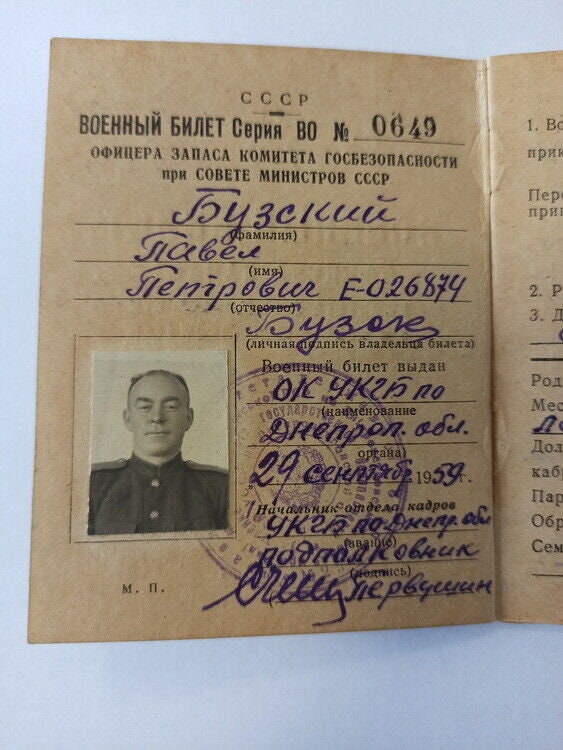 СССР
ВОЕННЫЙ БИЛЕТ Серия ВО № 0649
ОФИЦЕРА ЗАПАСА КОМИТЕТА ГОСБЕЗОПАСНОСТИ
при СОВЕТЕ МИНИСТРОВ СССР
Бузский
(фамилия)
Павел
(имя)
Петрович Е-026874
(отчество)
(личная подпись владельца билета)
Военный билет выдан
ОК УКГБ по
(наименование
Днепроп. обл.
органа)
"29 сентябр 1959 г.
Начальник отдела кадров
УКГБ по Днепр. обл
(звание)
подполковник
(подпись)
Первушин
М. П.
1. Во
прик
2. Р
3. Д
Род
Мес
Дол
кабр
Пар
Обр
Сем